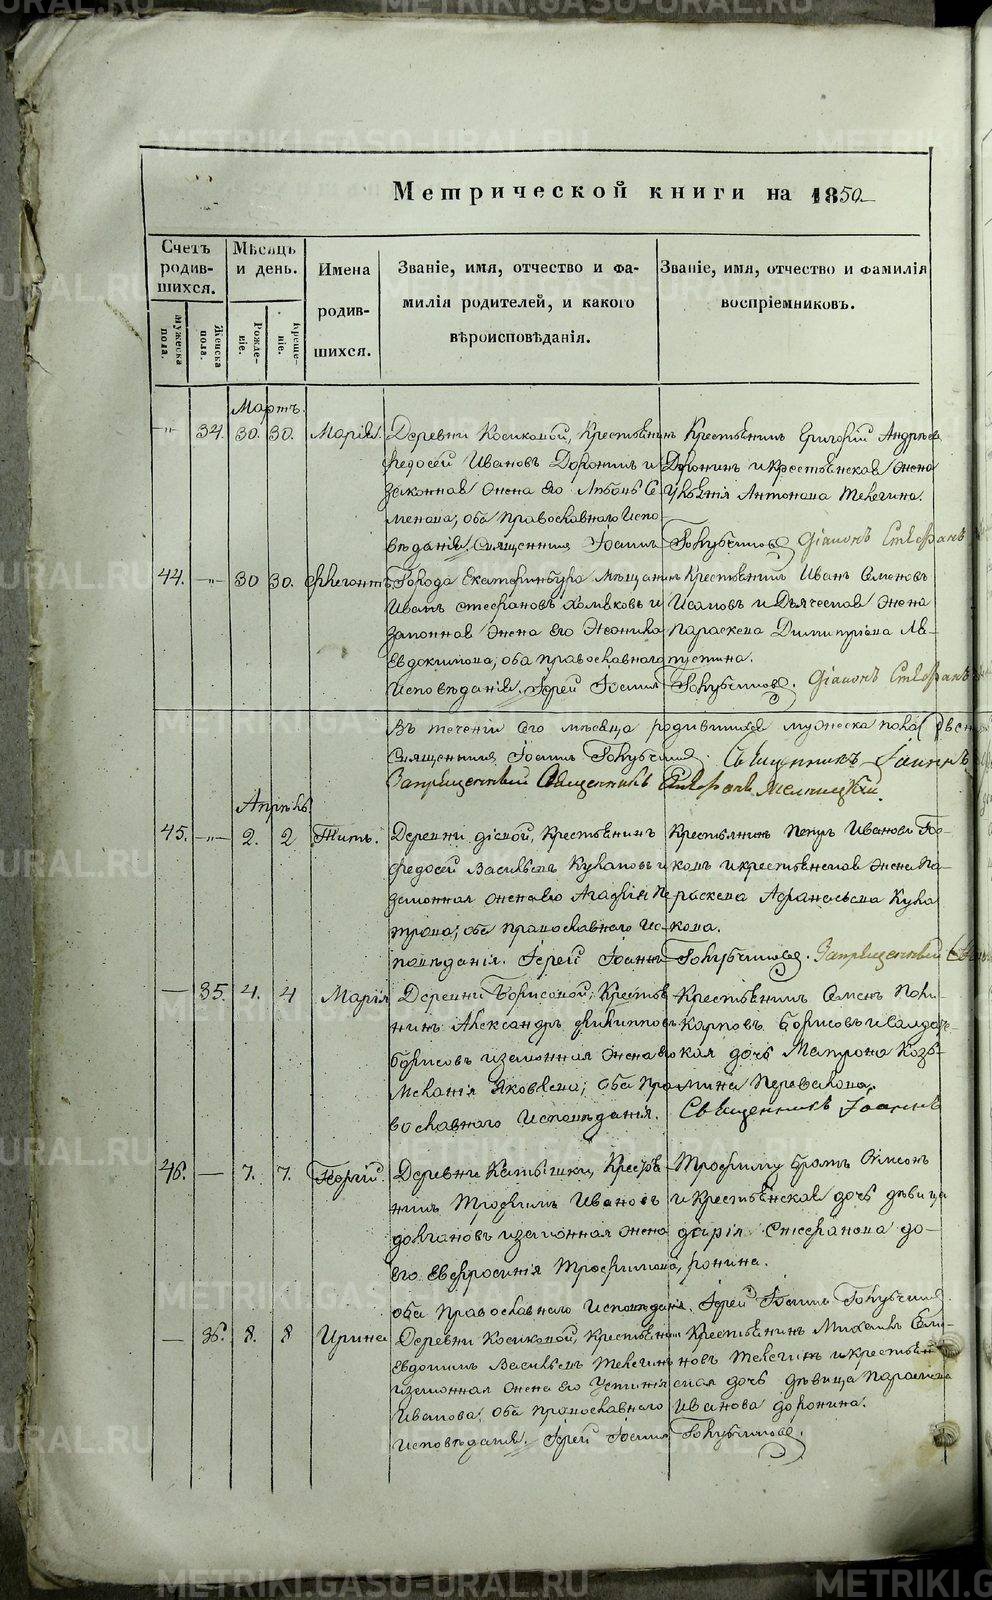 METRIKI.GASO-URAL.RU
Метрической книги на 1850
Счетъ родившихся.
Мѣсяцъ и день.
Имена родившихся.
Званіе, имя, отчество и фамилія родителей, и какого вѣроисповѣданія.
Званіе, имя, отчество и фамилія воспріемниковъ.
Мужеска пола.
Женска пола.
Рожденіе.
Крещеніе.
Мартъ
34. 30. 30. Марія.
Деревни Косиковой, Крестьянинъ
Федосей Ивановъ Доронинъ и
законная жена его Любовь Се
менова; оба Православнаго Испо
вѣданія. Священникъ Іоаннъ
Крестьянинъ Григорій Андреевъ
Доронинъ и крестьянская жена
Антонова Телегина.
Діаконъ Стефанъ
44. 30 30.
Города Екатеринбурга мѣщанинъ
Иванъ Стефановъ Хомяковъ и
законная жена его Ѳеоника
Евдокимова, оба православнаго
Исповѣданія. Іерей Іоаннъ
Крестьянинъ Иванъ Семеновъ
Исаковъ и Дьяческая жена
Параскева Димитріева Ла-
пустина.
Діаконъ Стефанъ
Въ теченіи сего мѣсяца родившихся мужеска пола
Священникъ Іоаннъ Священникъ Іоаннъ
Запрещенный Священникъ Стефанъ
Апрѣль
45. 2. 2 Титъ.
Деревни Крестьянинъ
Федосей Васильевъ и
законная жена его Агафья Пе
трова; оба Православнаго Ис-
повѣданія. Іерей Іоаннъ
Крестьянинъ Петръ Ивановъ
и крестьянская жена Па-
раскева Афанасьева
кова.
Запрещенный
35. 4. 4 Марія
Деревни Борисовой; Крестья
нинъ Александръ Филипповъ
Борисовъ и законная жена его
Меланія Яковлева; оба Пра
вославнаго Исповѣданія.
Крестьянинъ Семенъ
Карповъ Борисовъ и солдат-
ская дочь Матрона Козь-
мина Перевалова.
Священникъ Іоаннъ
46. 7. 7. Георгій.
Деревни Крестья
нинъ Трофимъ Ивановъ
Долгановъ и законная жена
его Евфросинія Трофимова,
оба Православнаго Исповѣданія. Іерей Іоаннъ
Трофиму братъ Симеонъ
и Крестьянская дочь дѣвица
Дарія Стефанова До-
ронина.
36. 8. 8 Ирина
Деревни Косиковой, Крестьянинъ
Евдокимъ Васильевъ Телегинъ
и законная жена его Устинія
Иванова; оба православнаго
Исповѣданія. Іерей Іоаннъ
Крестьянинъ Михаилъ Семе-
новъ Телегинъ и крестьян
ская дочь дѣвица Параскева
Иванова Доронина.